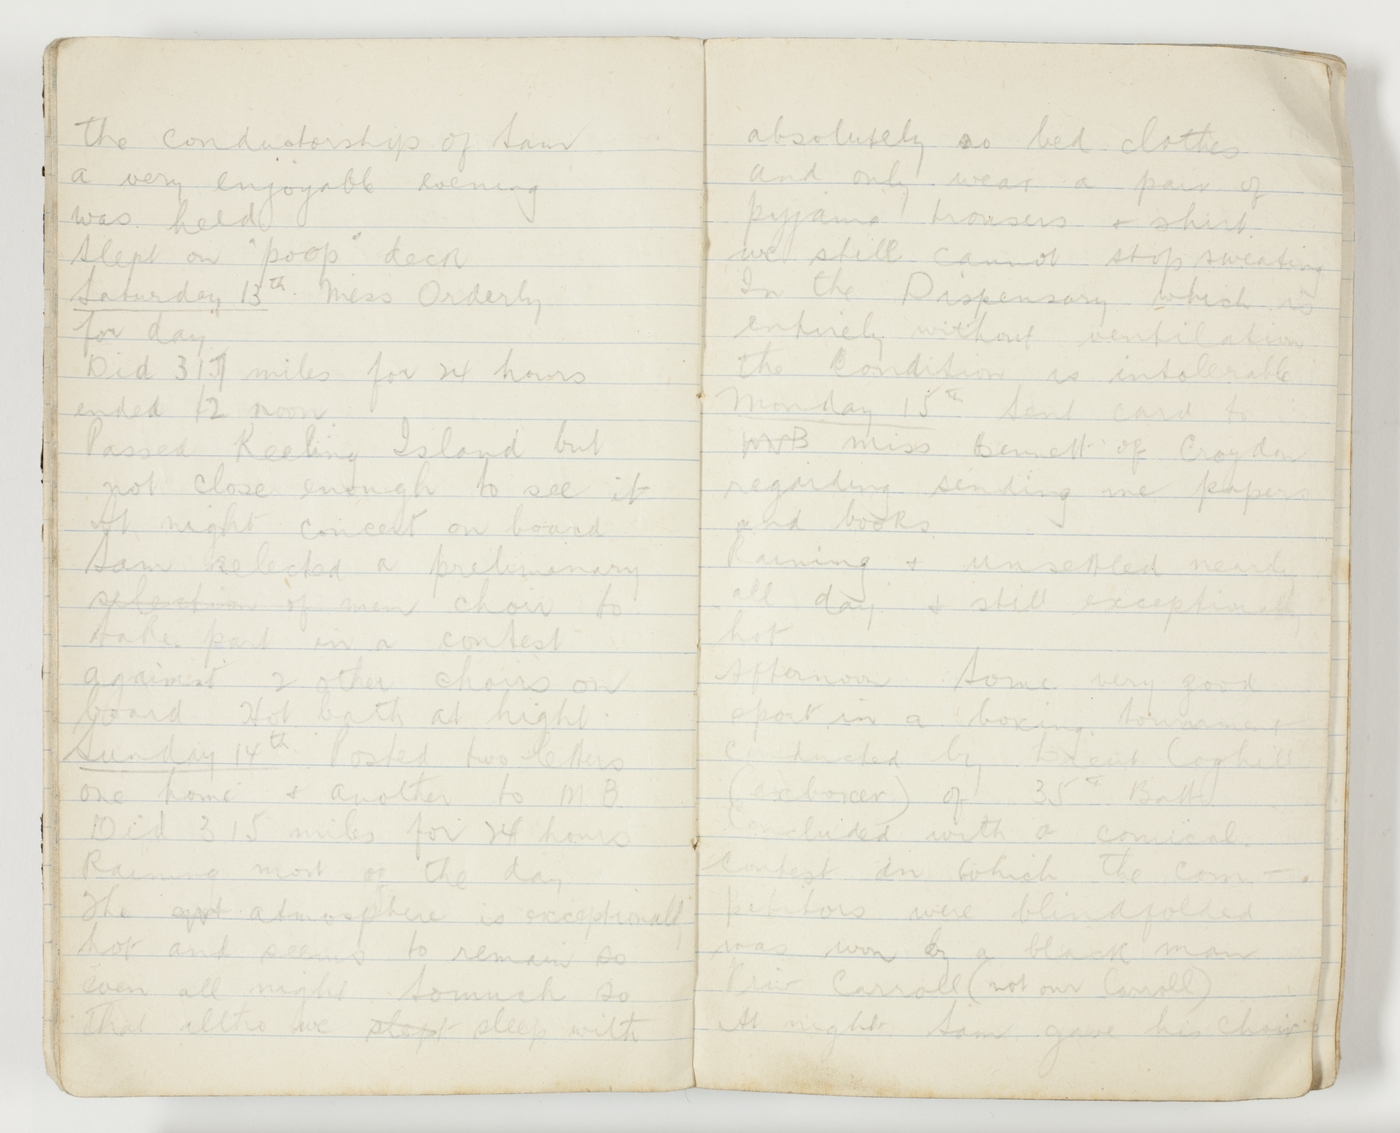 the conductorship of Sam
a very enjoyable evening
was held
Slept on "poop" deck
Saturday 13th Mess Orderly
for day
Did 317 miles for 24 hours
ended 12 noon
Passed Keeling Island but
not close enough to see it
At night concert on board
Sam selected a preliminary
selection of men choir to
take part in a contest
against 2 other choirs on
board Hot bath at night.
Sunday 14th Posted two letters
one home & another to M B
Did 315 miles for 24 hours
Raining most of the day
The atmosphere is exceptionally
hot and seems to remain so
even all night Somuch so
that altho we slept sleep with
absolutely no bed clothes
and only wear a pair of
pyjama trousers & shirt
we still cannot stop sweating
In the Dispensary which is
entirely without ventilation
the Condition is intolerable
Monday 15th Sent card to
Miss Bennett of Croydon
regarding sending me papers
and books.
Raining & unsettled nearly
all day & still exceptionally
hot
Afternoon Some very good
sport in a boxing tournament
conducted by Lieut Coghill
(ex boxer) of 35th Batt
Concluded with a comical
contest in which the com-
petitors were blindfolded
was won by a black man
Priv Carroll (not our Carroll)
At night Sam gave his choir